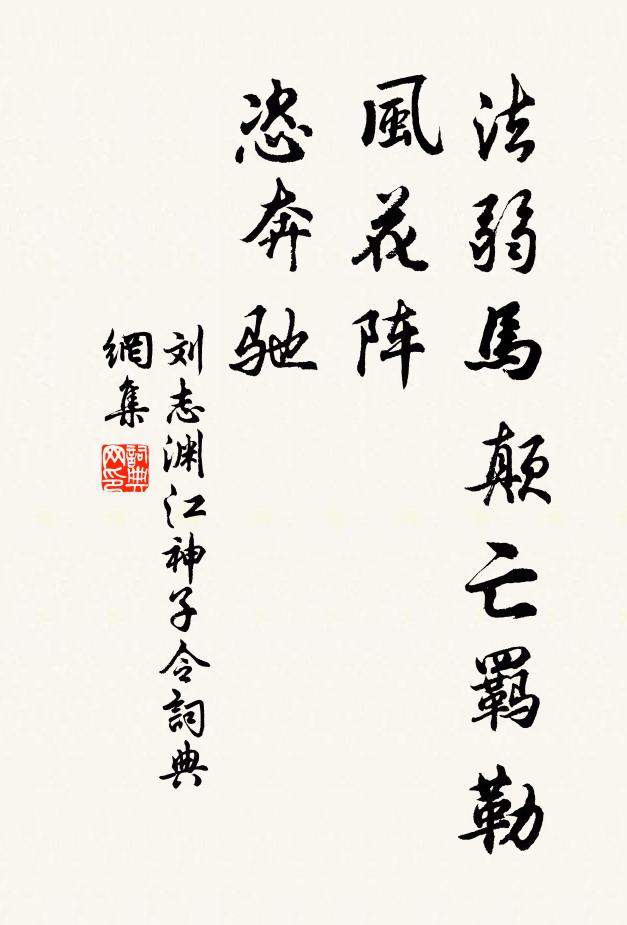 法弱馬顛亡羈勒
風花阵
恣奔驰
刘志渊江神子令詞典
網集
詞典网印